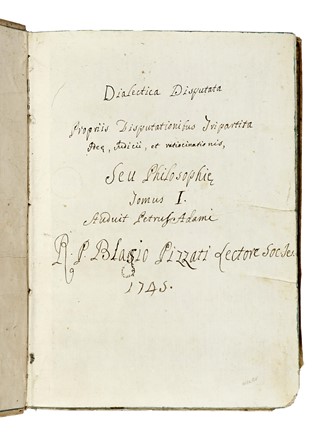 Dialectica Disputata
Propriis Disputationibus Tripartita
Ideę, Judicii, et ratiocinationis,
Seu Philosophię
Tomus I.
Audivit Petrus Adami
R. P. Blasio Pizzati Lectore Soc. Jesu
1745.